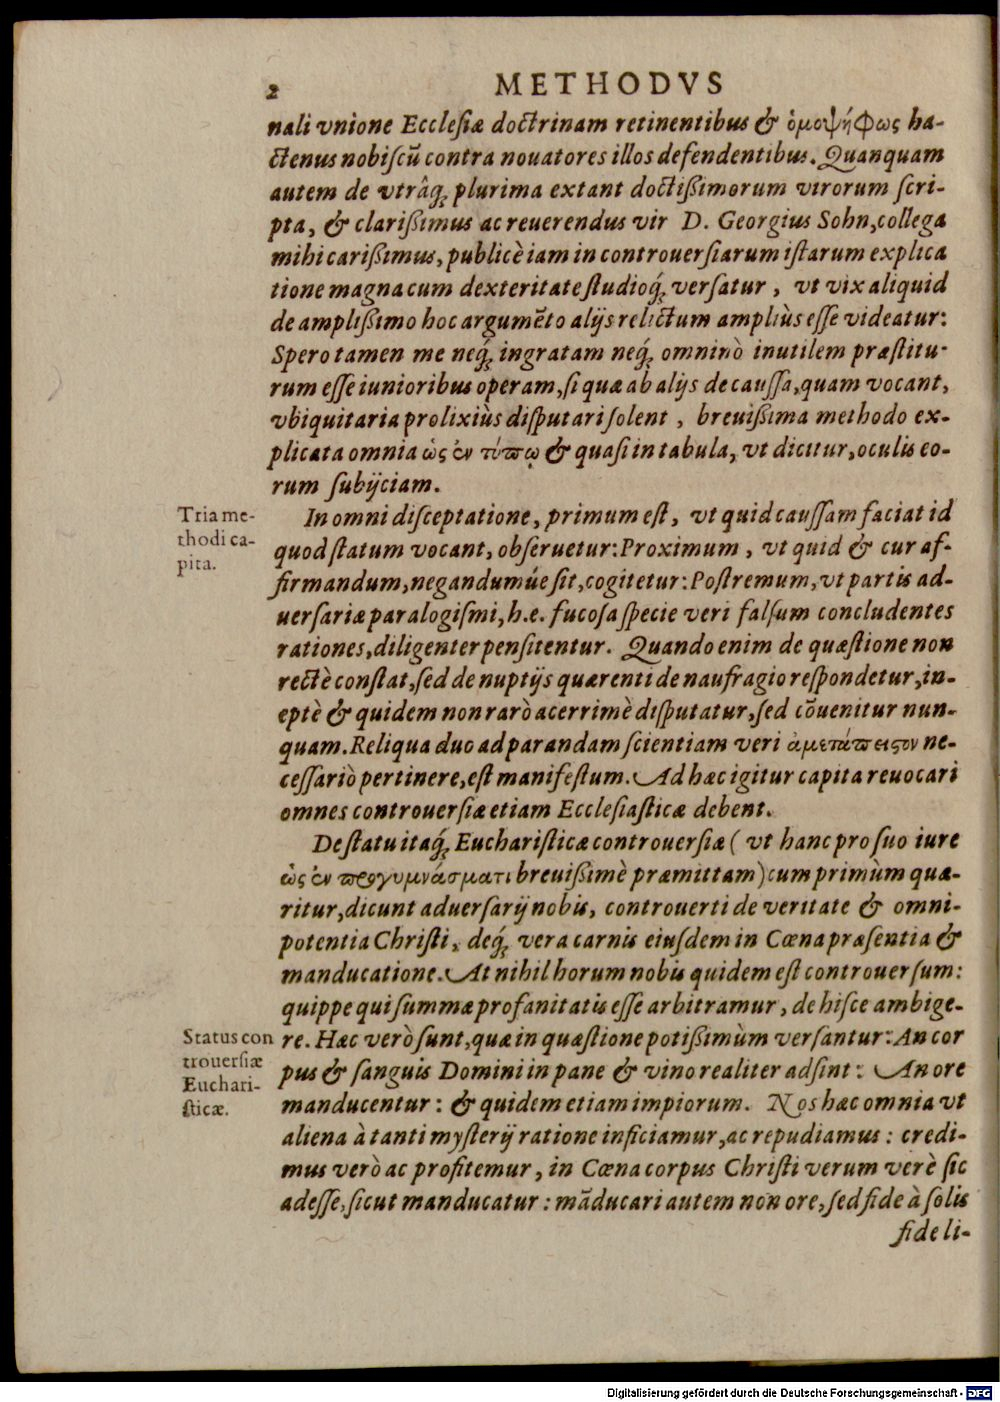 2 METHODVS
nali vnione Ecclesiæ doctrinam retinentibus & ὁμοψήφως ha-
ctenus nobiscū contra nouatores illos defendentibus. Quanquam
autem de vtrâq; plurima extant doctißimorum virorum scri-
pta, & clarißimus ac reuerendus vir D. Georgius Sohn, collega
mihi carißimus, publicè iam in controuersiarum istarum explica
tione magna cum dexteritate studioq́; versatur, vt vix aliquid
de amplißimo hoc argumēto alijs relictum ampliùs esse videatur:
Spero tamen me neq́; ingratam neq́; omninò inutilem præstitu-
rum esse iunioribus operam, si quæ ab alijs de caussa, quam vocant,
vbiquitaria prolixiùs disputari solent, breuißima methodo ex-
plicata omnia ὡς ἐν τύπῳ & quasi in tabula, vt dicitur, oculis eo-
rum subijciam.
Tria me-
thodi ca-
pita.
In omni disceptatione, primum est, vt quid caussam faciat id
quod statum vocant, obseruetur: Proximum, vt quid & cur af-
firmandum, negandumúe sit, cogitetur: Postremum, vt partis ad-
uersariæ paralogismi, h.e. fucosa specie veri falsum concludentes
rationes, diligenter pensitentur. Quando enim de quæstione non
rectè constat, sed de nuptijs quærenti de naufragio respondetur, in-
eptè & quidem non rarò acerrimè disputatur, sed cōuenitur nun-
quam. Reliqua duo ad parandam scientiam veri ἀμετάπειστον ne-
cessariò pertinere, est manifestum. Ad hæc igitur capita reuocari
omnes controuersiæ etiam Ecclesiasticæ debent.
De statu itaq́; Eucharisticæ controuersiæ (vt hanc pro suo iure
ὡς ἐν προγυμνάσματι breuißimè præmittam) cum primùm quæ-
ritur, dicunt aduersarij nobis, controuerti de veritate & omni-
potentia Christi, deq́; vera carnis eiusdem in Cœna præsentia &
manducatione. At nihil horum nobis quidem est controuersum:
quippe qui summæ profanitatis esse arbitramur, de hisce ambige-
Status con
trouersiæ
Euchari-
sticæ.
re. Hæc verò sunt, quæ in quæstione potißimùm versantur: An cor
pus & sanguis Domini in pane & vino realiter adsint: An ore
manducentur: & quidem etiam impiorum. Nos hæc omnia vt
aliena à tanti mysterij ratione inficiamur, ac repudiamus: credi-
mus verò ac profitemur, in Cœna corpus Christi verum verè sic
adesse, sicut manducatur: māducari autem non ore, sed fide à solis
fideli-
Digitalisierung gefördert durch die Deutsche Forschungsgemeinschaft - DFG